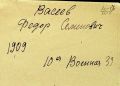 Васеев
Федор Семенович
1909
10я Военная 33